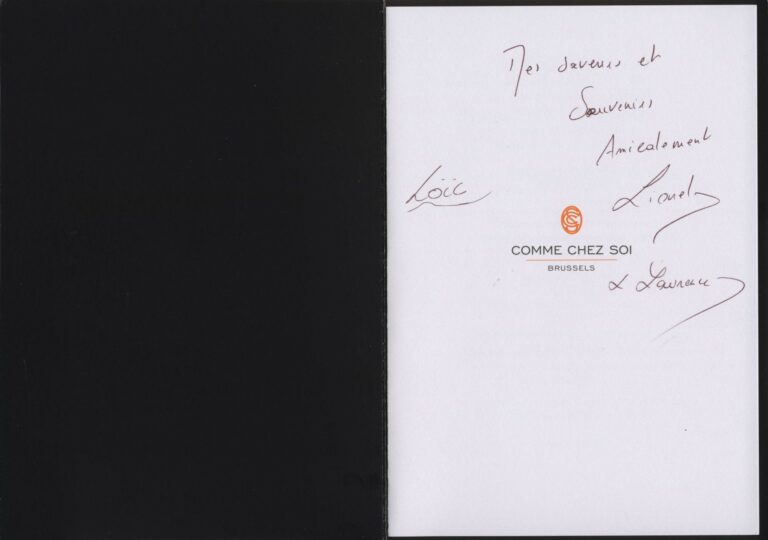 Des saveurs et
Souvenirs
Amicalement
Loïc
Lionel
COMME CHEZ SOI
BRUSSELS
& Laurence